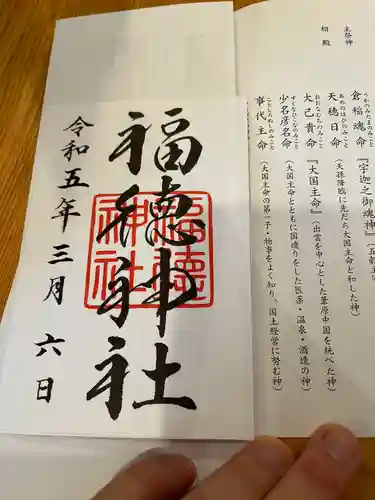 福徳神社
令和五年三月六日
福徳神社
主祭神
相殿
うかのみたまのみこと
倉稲魂命
『宇迦之御魂神』
あめのほひのみこと
天穂日命
(天孫降臨に先だち大国主命と和した神)
おおなむちのみこと
大己貴命
『大国主命』
(出雲を中心とした葦原中国を統べた神)
すくなひこなのみこと
少名彦名命
(大国主命とともに国造りをした医薬・温泉・酒造の神)
ことしろぬしのみこと
事代主命
(大国主命の第一子・物事をよく知り、国土経営に努む神)